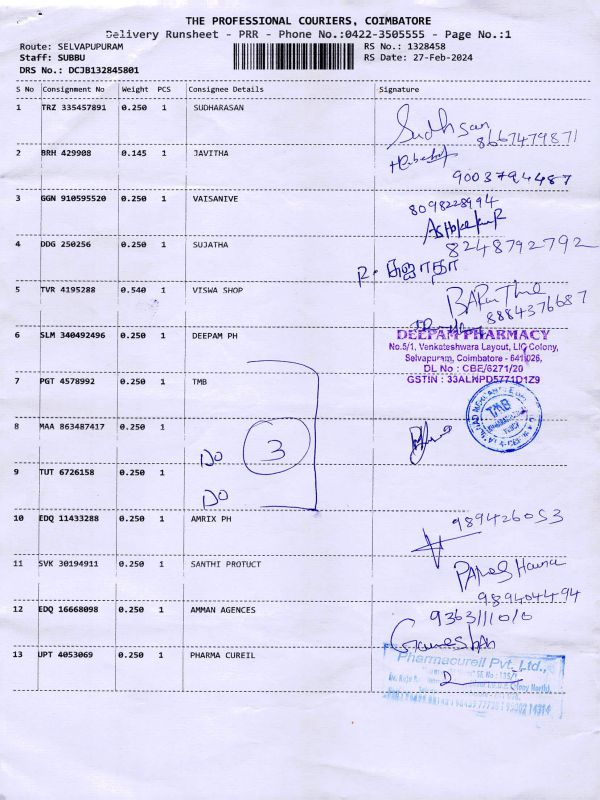 THE PROFESSIONAL COURIERS, COIMBATORE
Delivery Runsheet - PRR - Phone No.:0422-3505555 - Page No.:1
Route: SELVAPUPURAM RS No.: 1328458
Staff: SUBBU RS Date: 27-Feb-2024
DRS No.: DCJB132845801
S No Consignment No Weight PCS Consignee Details Signature
1 TRZ 335457891 0.250 1 SUDHARASAN
8667479871
2 BRH 429908 0.145 1 JAVITHA
9003794487
3 GGN 910595520 0.250 1 VAISANIVE
8098228994
4 DDG 250256 0.250 1 SUJATHA
8248792792
5 TVR 4195288 0.540 1 VISWA SHOP
8884376687
6 SLM 340492496 0.250 1 DEEPAM PH
DEEPAM PHARMACY
No.5/1, Venkateshwara Layout, LIC Colony,
Selvapuram, Coimbatore - 641 026,
DL No : CBE/6271/20
GSTIN : 33ALNPD5771D1Z9
7 PGT 4578992 0.250 1 TMB
TMB
8 MAA 863487417 0.250 1
DO 3
9 TUT 6726158 0.250 1
DO
10 EDQ 11433288 0.250 1 AMRIX PH
989426053
11 SVK 30194911 0.250 1 SANTHI PROTUCT
989404494
12 EDQ 16668098 0.250 1 AMMAN AGENCES
9363111010
Ganeshan
13 UPT 4053069 0.250 1 PHARMA CUREIL
Pharmacureil Pvt. Ltd.,